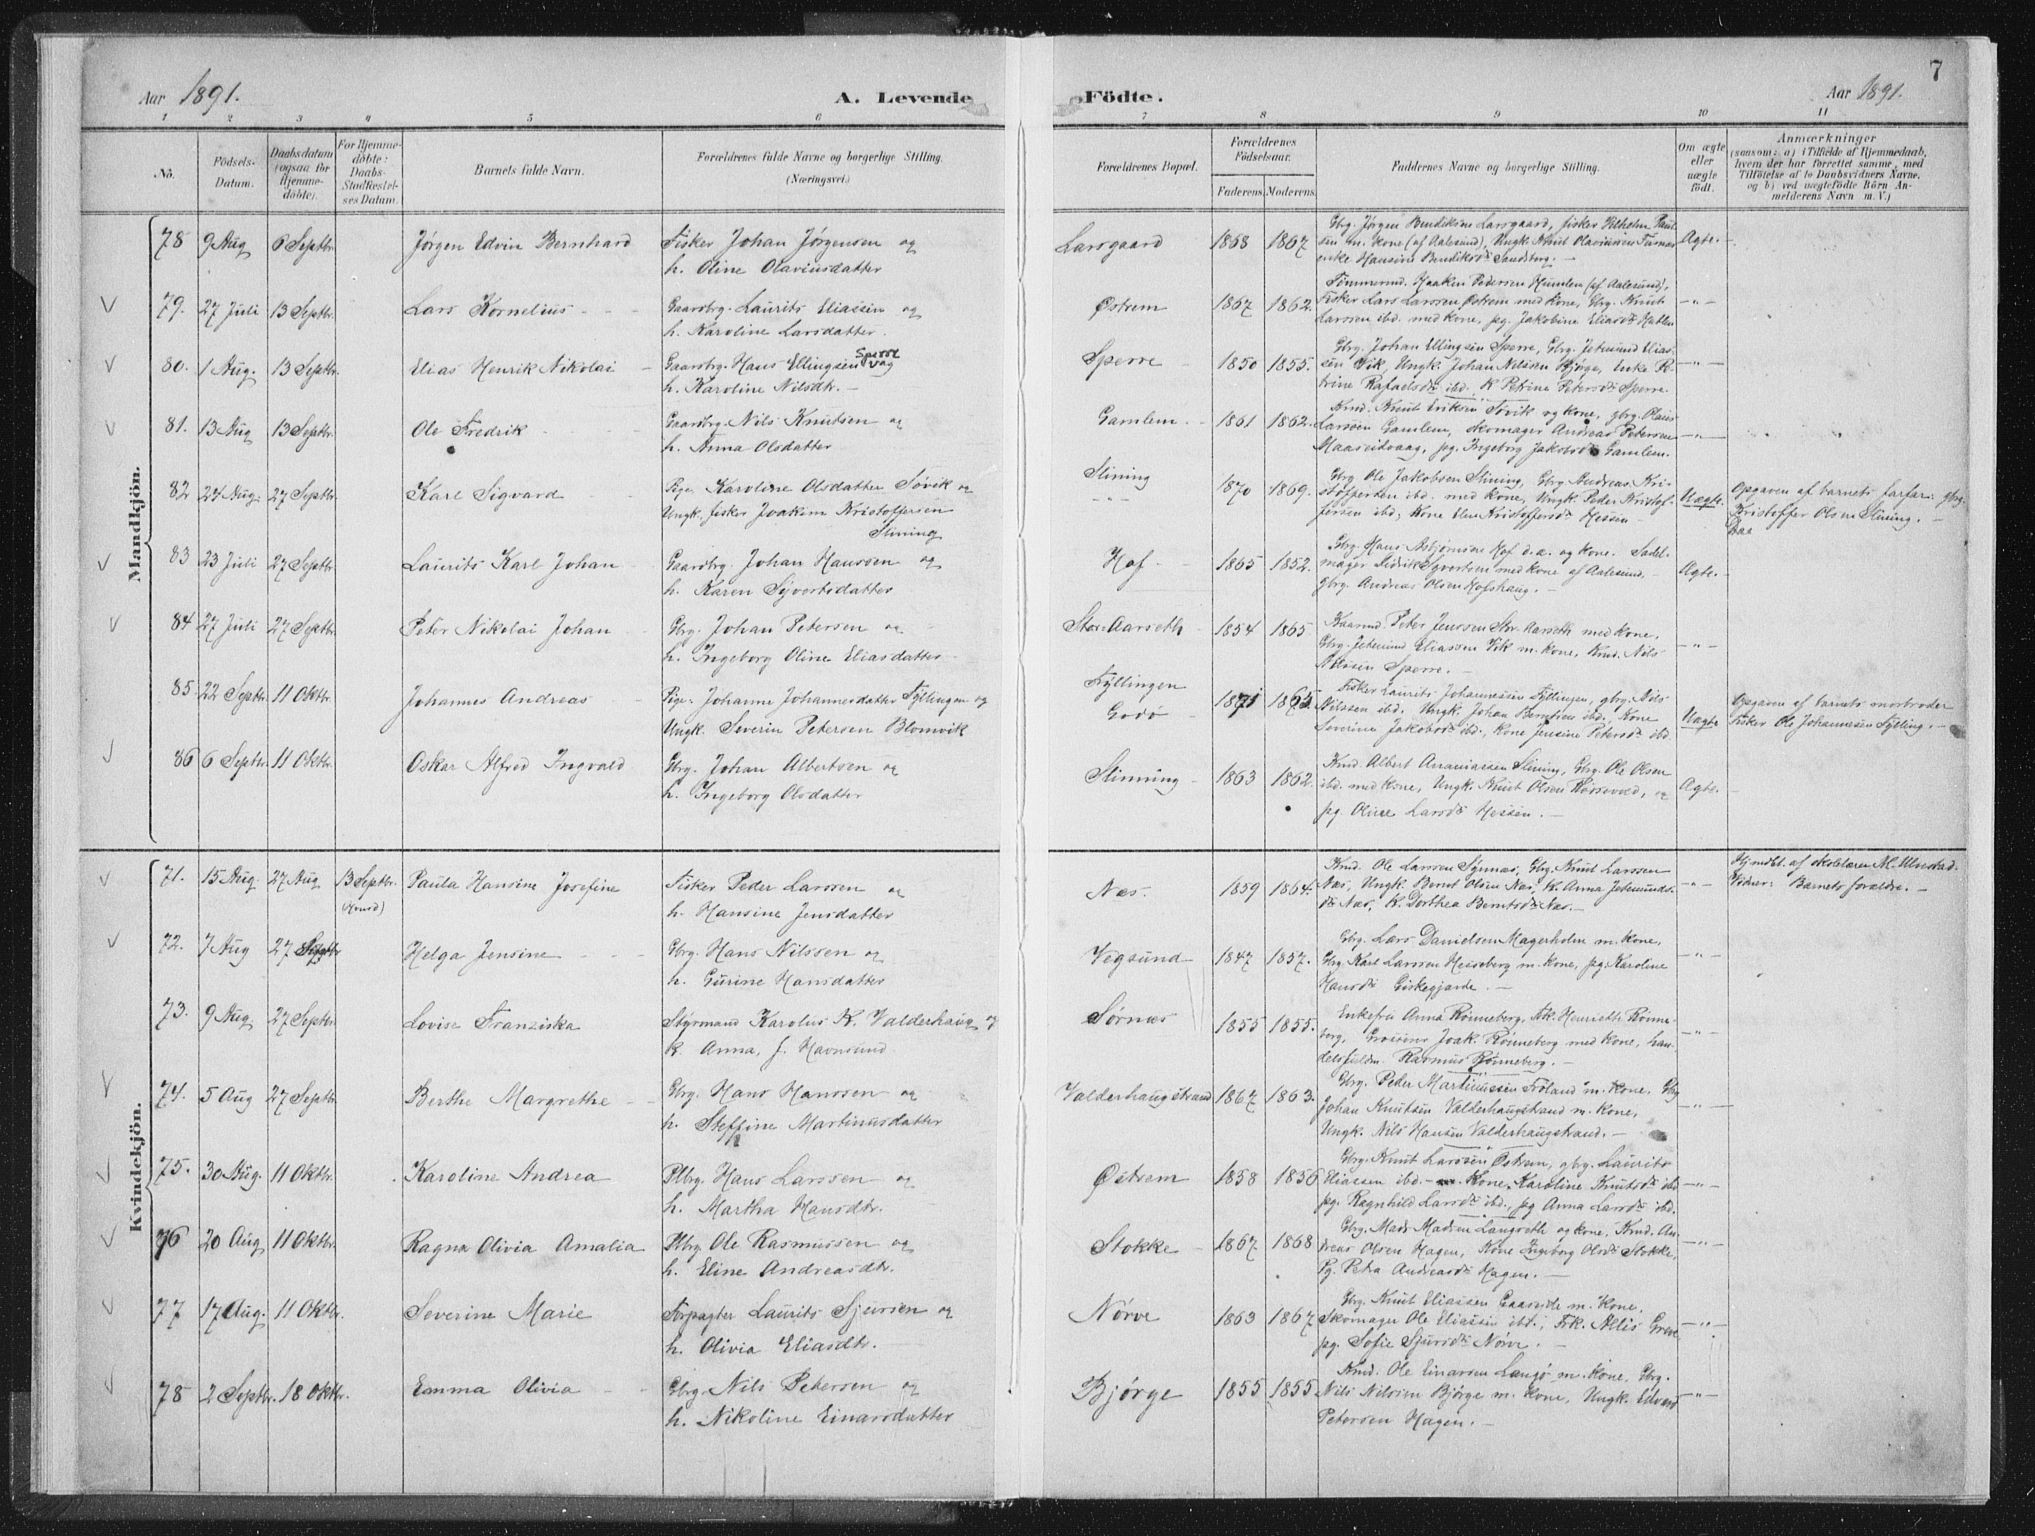 7
Aar 1891.
A. Levende
Födte.
Aar 1891.
1 2 3 4 5 6 7 8 9 10 11
No.
Födsels-Datum.
Daabsdatum (ogsaa for Hjemmedöbte).
For Hjemmedöbte: Daabs-Stadfæstelses Datum.
Barnets fulde Navn.
Forældrenes fulde Navne og borgerlige Stilling.
(Næringsvei.)
Forældrenes Bopæl.
Forældrenes Födselsaar.
Faderens Moderens
Faddernes Navne og borgerlige Stilling.
Om ægte eller uægte födt.
Anmærkninger
(saasom: a) i Tilfælde af Hjemmedaab, hvem der har forrettet samme, med Tilföielse af to Daabsvidners Navne, og b) ved uægtefödte Börn Anmelderens Navn m. V.)
Mandkjön.
78 9 Aug 6 Septbr. Jørgen Edvin Bernhard Fisker Johan Jørgensen og
h. Oline Olaviusdatter
Larsgaard 1868 1867 Gbg. Jørgen Bendiksen Larsgaard, fisker Vilhelm Paulsen m. Kone (af Aalesund), Ungk. Knut Olaviussen
enke Hansine Bendiksdr Sandberg. Ægte.
79. 27 Juli 13 Septbr. Lars Kornelius Gaardbrg. Laurits Eliassen og
h. Karoline Larsdatter.
Østrem 1867 1862. Tømmermd. Haaken Pedersen Humlen (af Aalesund),
Fisker Lars Larssen Østrem med Kone, Gbrg. Knut
Larssen ibd. med kone, pg. Jakobine Eliasdr Hatlen -"-
80. 1 Aug. 13 Septbr. Elias Henrik Nikolai Gaardbrg. Hans Ellingsen Sperrevag
h. Karoline Nilsdtr.
Sperre 1850 1855. Gbrg. Johan Ellingsen Sperre, Gbrg. Jetmund Eliassen Vik, Ungk. Johan Nilssen Bjørge, Enke Petrine Rafaelsdr ibd. K Petrine Petersdr Sperre. -"-
81. 13 Aug 13 Septbr. Ole Fredrik Gaardbrg. Nils Knutsen og
h. Anna Olsdatter
Gamlem. 1861 1862. Kmd. Knut Eriksen Søvik og kone, gbrg. Olaus
Larssen Gamlem, skomager Andreas Petersen
pg. Ingeborg Jakobsdr Gamlem. -"-
82 24 Aug. 27 Septbr. Karl Sigvard Pige Karoline Olsdatter Søvik og
Ungk. fisker Joakim Kristoffersen
Slining
Slining 1870 1869. Gbrg Ole Jakobsen Slining, Gbrg Andreas Kristoffersen ibd. med kone, Ungk. Peder Kristoffersen ibd, Kone Elen Kristoffersdr Hessen Uægte. Opgaven af barnets farfar: gbrg.
Kristoffer Olsen Slining.
83 23 Juli 27 Septbr. Laurits Karl Johan Gaardbrg. Johan Hanssen og
h. Karen Syvertsdatter
Hof 1865 1852. Gbrg. Hans Asbjørnsen Hof d.a. og kone. Sadelmager Syvertsen med kone af Aalesund.
gbrg. Andreas Olsen Hofshaug. Ægte.
84 27 Juli 27 Septbr. Peter Nikolai Johan Gbrg. Johan Petersen og
h. Ingeborg Oline Eliasdatter
Stor-Aarseth 1854 1865. Kaarmd Peter Jenssen Stor-Aarseth med kone,
Gbrg. Jetmund Eliassen Vik m. kone, Kmd. Nils
Sperre. -"-
85. 22 Septbr. 11 Oktbr. Johannes Andreas Pige. Johanne Johannesdatter Fyllingen og
Ungk. Severin Petersen Blomvik
Fyllingen
Godø 1871 1865. Fisker Laurits Johannessen Fyllingen, gbrg. Nils
Nilssen ibd. Ungk. Johan Berntsen ibd. Kone
Severine Jakobsdr ibd., kone Jensine Petersdr ibd. Uægte Opgaven af barnets morbroder
Fisker Ole Johannessen Fylling.
86 6 Septbr. 11 Oktbr. Oskar Alfred Ingvald Gbrg. Johan Albertsen og
h. Ingeborg Olsdatter
Slinning 1863 1862. Kmd. Albert Ananiassen Slining, Gbrg. Ole Olsen
ibd. med kone, Ungk. Knut Olsen og
pg. Oline Larsdr Hessen. Ægte.
Kvindekjön.
71. 15 Aug. 27 Aug 13 Septbr. Paula Hansine Josefine Fisker Peder Larssen og
h. Hansine Jensdatter
Næs. 1859 1864. Kmd. Ole Larssen Synnæs, Gbrg. Knut Larssen
Næs, Ungk. Bernt Olsen Næs, K. Anna Jetmundsdr Næs, K. Dorthea Berntsdr Næs. -"- Hjemdbt. af skolelærer M. Ulvestad.
Vidner: Barnets forældre.
72. 7 Aug 27 Septbr Helga Jensine Gbrg. Hans Nilssen og
h. Gurine Hansdatter
Vegsund 1847 1857. Gbrg. Lars Danielsen Magerholm m. kone,
Gbrg. Karl Larssen Hesseberg m. kone, pg. Karoline
Hansdr Giskegjerde. -"-
73. 9 Aug. 27 Septbr. Lovise Franziska Styrmand Karolus K. Valderhaug og
K. Anna, f. Havnsund
Sørnæs 1855 1855. Enkefru Anna Rønneberg, Frk. Henriette Rønneberg, Joak. Rønneberg med kone, handelsfuldm. Rasmus Rønneberg. -"-
74. 5 Aug 27 Septbr Berthe Margrethe Gbrg. Hans Hanssen og
h. Steffine Martinusdatter
Valderhaugstrand 1867 1863. Gbrg. Peder Martinussen Frøland m. kone, Gbrg
Johan Knutsen Valderhaugstrand m. kone,
Ungk. Nils Hansen Valderhaugstrand. -"-
75. 30 Aug. 11 Oktbr. Karoline Andrea Pbrg. Hans Larssen og
h. Martha Hansdtr.
Østrem 1858 1856 Gbrg. Knut Larssen Østrem, gbrg. Laurits
Eliassen ibd. Kone Karoline Knutsdr ibd
pg. Ragnhild Larsdr ibd., pg Anna Larsdr ibd. -"-
76 20 Aug 11 Oktbr. Ragna Olivia Amalia Pbrg Ole Rasmussen og
h. Eline Andreasdtr.
Stokke 1867 1868 Gbrg. Mads Madsen Langseth og kone, Kmd. Andreas Olsen Hagen, Kone Ingeborg Olsdr Stokke,
Pg. Petra Andreasdr Hagen. -"-
77 17 Aug. 11 Oktbr. Severine Marie Forpagter Laurits Sjursen og
h. Olivia Eliasdtr.
Nørve 1863 1867 Gbrg. Knut Eliassen Gaaseide m. kone,
Skomager Ole Eliassen ibd., Frk. Allis
pg. Sofie Sjursdr Nørve. -"-
78 2 Septbr. 18 Oktbr. Emma Olivia Gbrg. Nils Petersen og
h. Nikoline Einarsdatter
Bjørge 1855 1855 Kmd. Ole Einarsen Langø m. kone, Gbrg.
Nils Nilssen Bjørge m. kone, Ungk. Edvard
Petersen Hagen. -"-